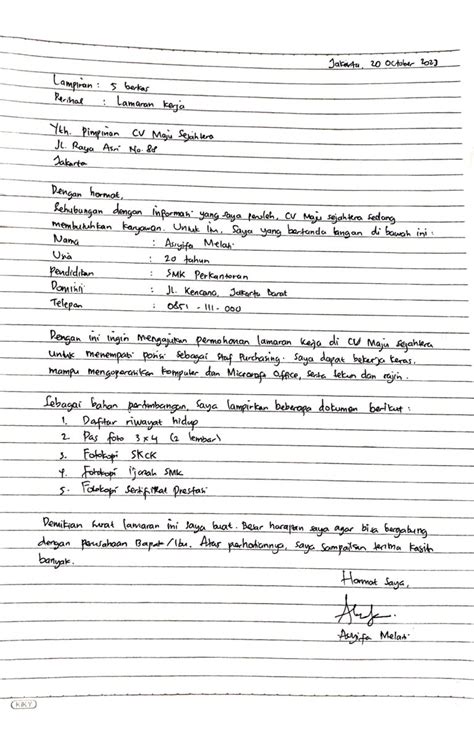 Jakarta, 20 October 2023
Lampiran : 5 berkas
Perihal : Lamaran kerja
Yth. Pimpinan CV Maju Sejahtera
Jl. Raya Asri No. 88
Jakarta
Dengan hormat,
Sehubungan dengan informasi yang saya peroleh, CV Maju sejahtera sedang
membutuhkan karyawan. Untuk itu, Saya yang bertanda tangan di bawah ini :
Nama : Asyifa Melati
Usia : 20 tahun
Pendidikan : SMK Perkantoran
Domisili : Jl. Kencana, Jakarta Barat
Telepon : 0851 - 111 - 000
Dengan ini ingin mengajukan permohonan lamaran kerja di CV Maju Sejahtera
untuk menempati posisi sebagai Staf Purchasing. Saya dapat bekerja keras,
mampu mengoperasikan komputer dan Microsoft Office, serta tekun dan rajin.
Sebagai bahan pertimbangan, saya lampirkan beberapa dokumen berikut :
1. Daftar riwayat hidup
2. Pas foto 3x4 (2 lembar)
3. Fotokopi SKCK
4. Fotokopi ijazah SMK
5. Fotokopi Sertifikat Prestasi
Demikian surat lamaran ini saya buat. Besar harapan saya agar bisa bergabung
dengan perusahaan Bapak/Ibu. Atas perhatiannya, saya sampaikan terima kasih
banyak.
Hormat Saya,
Asyifa Melati
KIKY